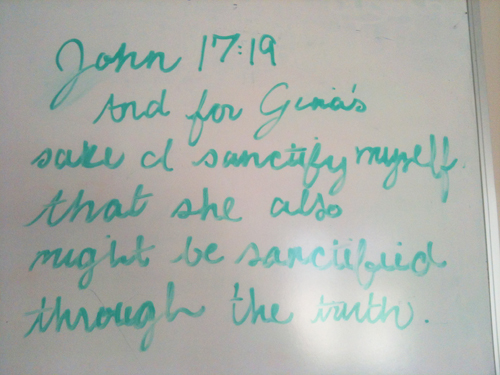 John 17:19
And for Gina's
sake I sanctify myself.
that she also
might be sanctified
through the truth.